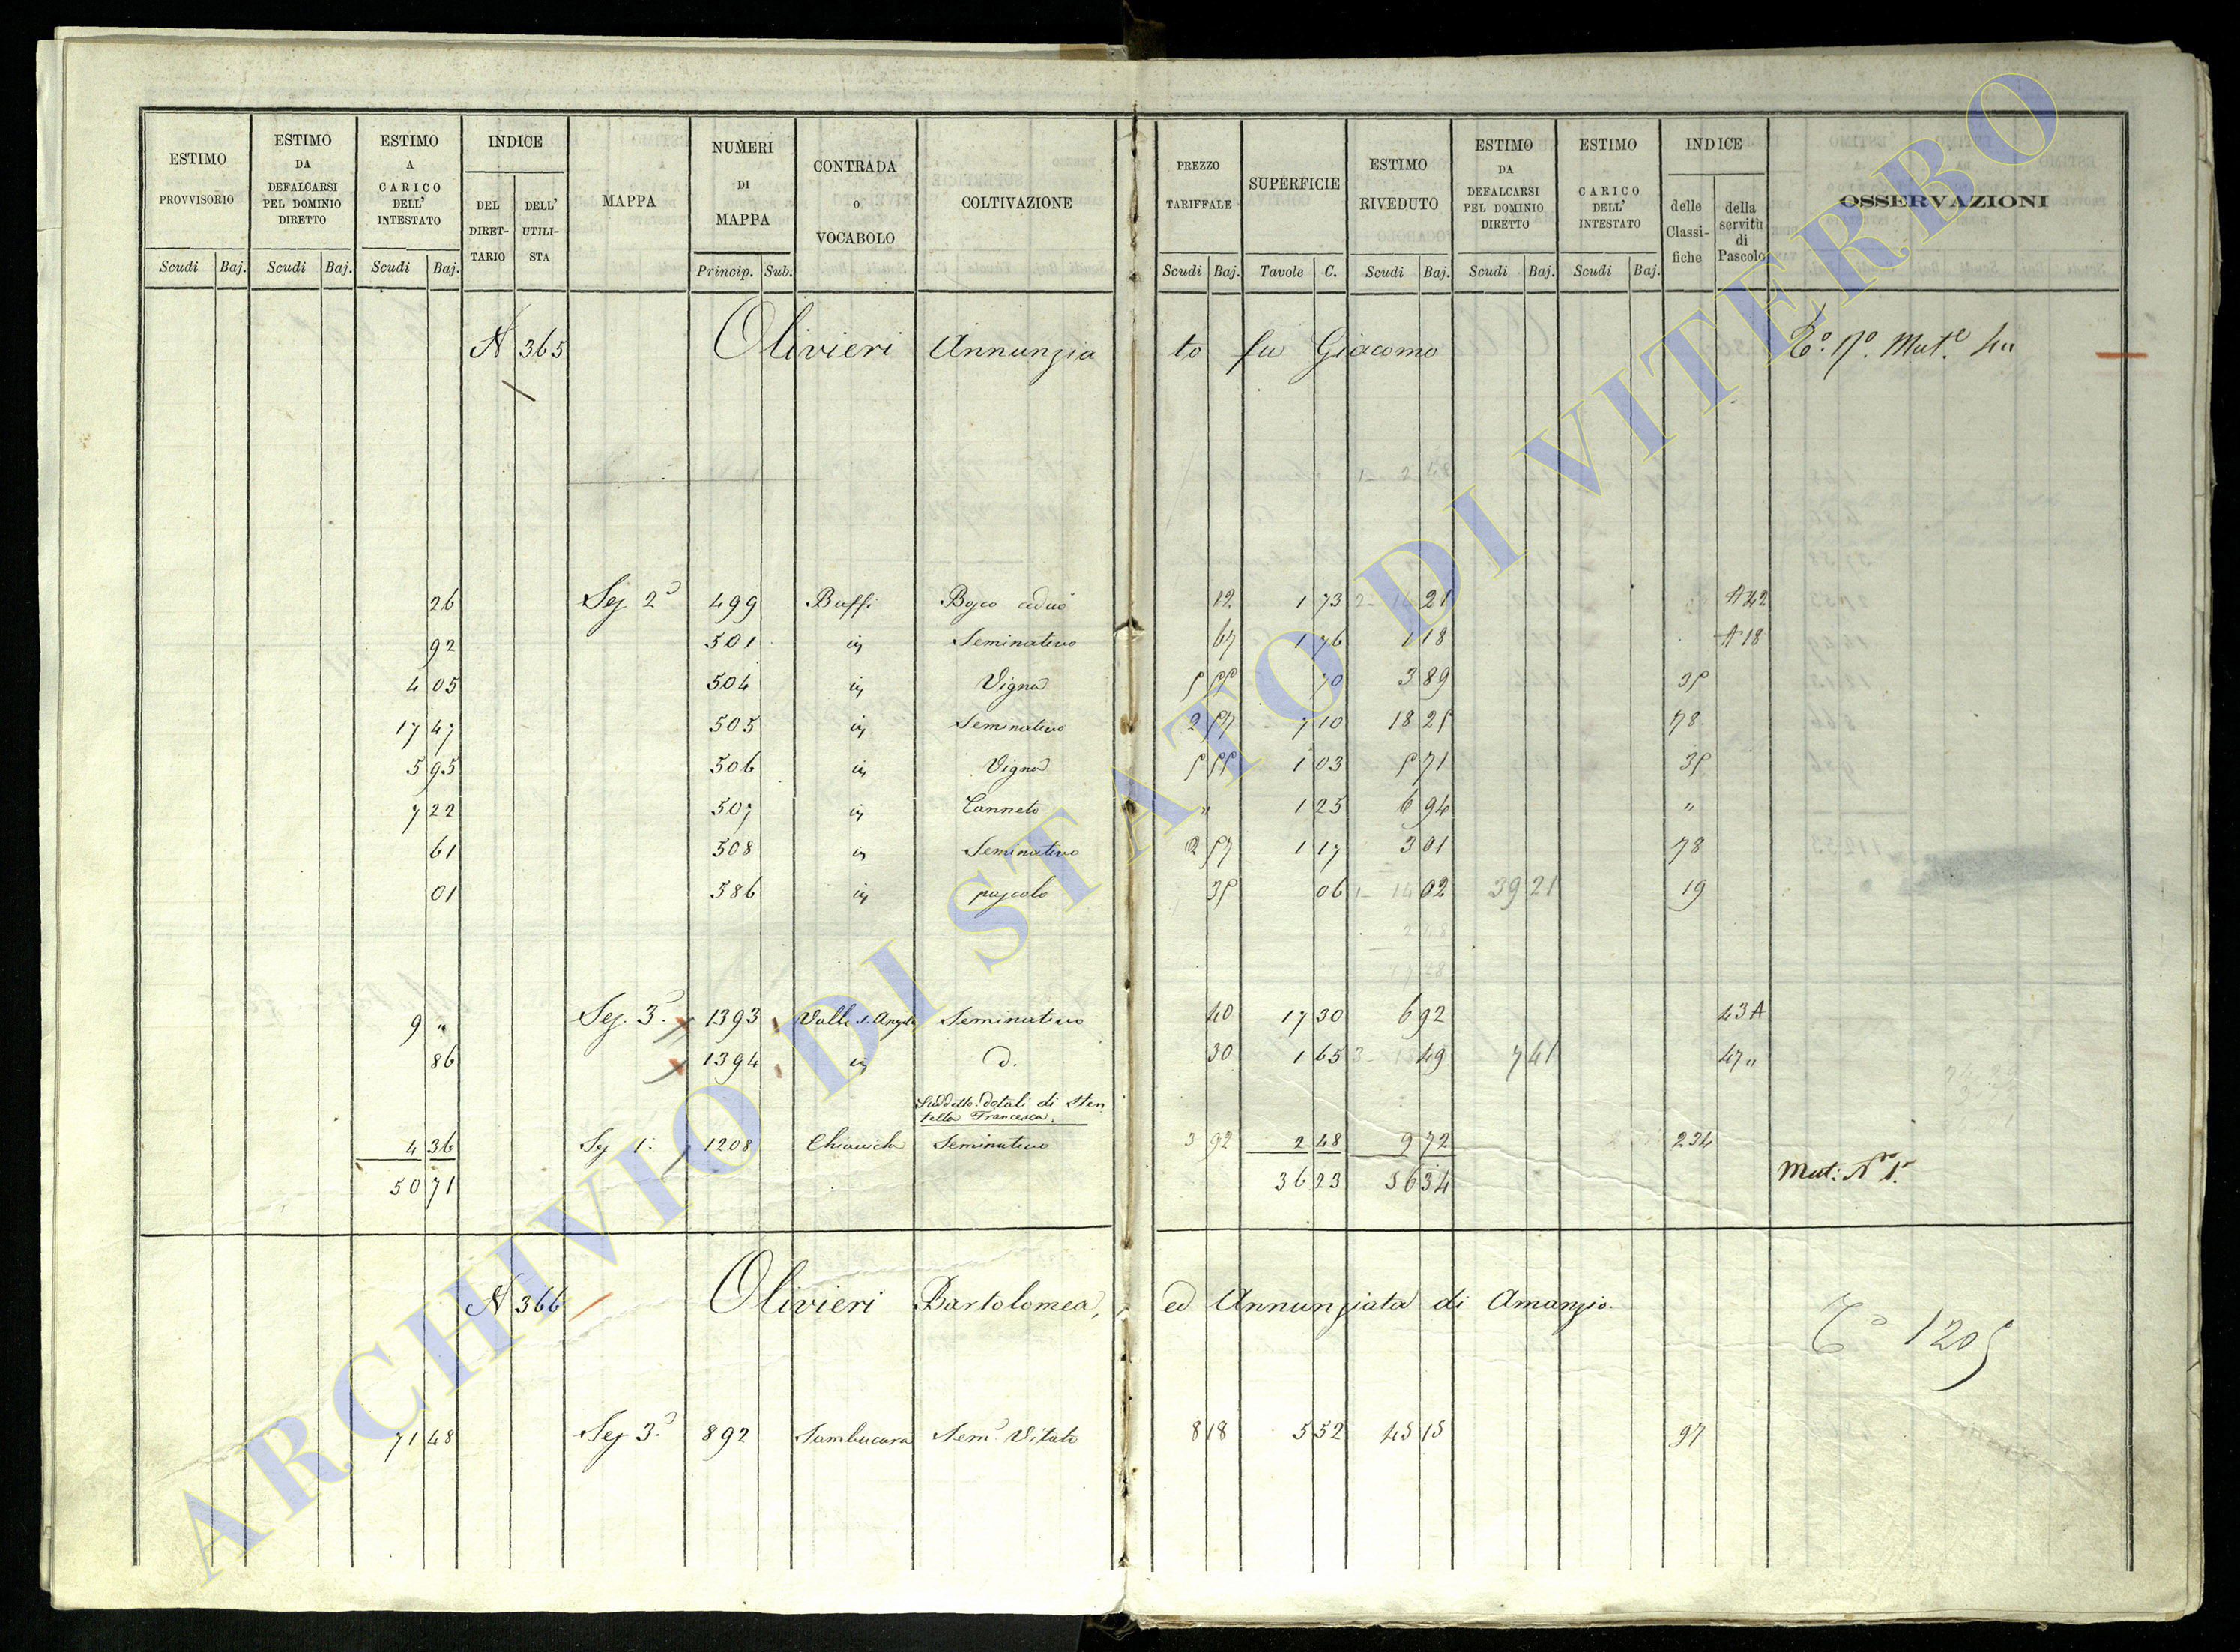 ESTIMO PROVVISORIO
Scudi Baj.
ESTIMO DA DEFALCARSI PEL DOMINIO DIRETTO
Scudi Baj.
ESTIMO A CARICO DELL' INTESTATO
Scudi Baj.
INDICE
DEL DIRET- TARIO
DELL' UTILI- STA
MAPPA
NUMERI DI MAPPA
Princip. Sub.
CONTRADA O VOCABOLO
COLTIVAZIONE
PREZZO TARIFFALE
Scudi Baj.
SUPERFICIE
Tavole C.
ESTIMO RIVEDUTO
Scudi Baj.
ESTIMO DA DEFALCARSI PEL DOMINIO DIRETTO
Scudi Baj.
ESTIMO A CARICO DELL' INTESTATO
Scudi Baj.
INDICE
delle Classi- fiche
della servitù di Pascolo
OSSERVAZIONI
N 365 Olivieri Annunzia to fu Giacomo
26 Sez. 2ª 499 Buffi Bosco ceduo 12 1 73 21 A 42
92 501 id Seminativo 67 1 76 1 18 A 18
4 05 504 id Vigna 5 55 70 3 89 35
17 47 505 id Seminativo 2 57 7 10 18 25 78
5 95 506 id Vigna 5 55 1 03 5 71 35
7 22 507 id Canneto " 1 25 6 94 "
61 508 id Seminativo 2 57 1 17 3 01 78
01 586 id pascolo 35 06 02 39 21 19
9 " Sez. 3ª 1393 Valle S. Angelo Seminativo 40 17 30 6 92 43 A
86 1394 id d. 30 1 65 49 7 41 47 "
Suddetto dotali di Sten
tella Francesca.
4 36 Sez 1ª 1208 Seminativo 3 92 2 48 9 72 234
50 71 36 23 56 34 Mut: Nº 1º
N 366 Olivieri Bartolomea, ed Annunziata di Amanzio.
1205
71 48 Sez. 3ª 892 Sambucara Semº Vitato 8 18 5 52 45 15 97
ARCHIVIO DI STATO DI VITERBO